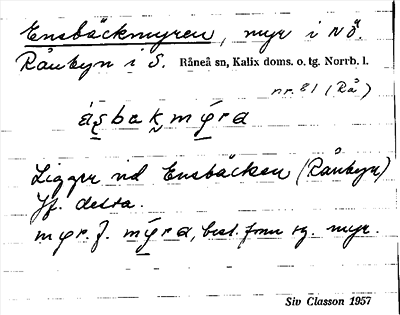 Ensbäckmyren, myr i NÖ.
Rånbyn i S. Råneå sn, Kalix doms. o. tg. Norrb. l.
nr. 81 (Rå)
ásbakmýra
Ligger vid Ensbäcken (Rånbyn)
Jf. detta.
myr. f. mýra, best. form sg. myr.
Siv Classon 1957